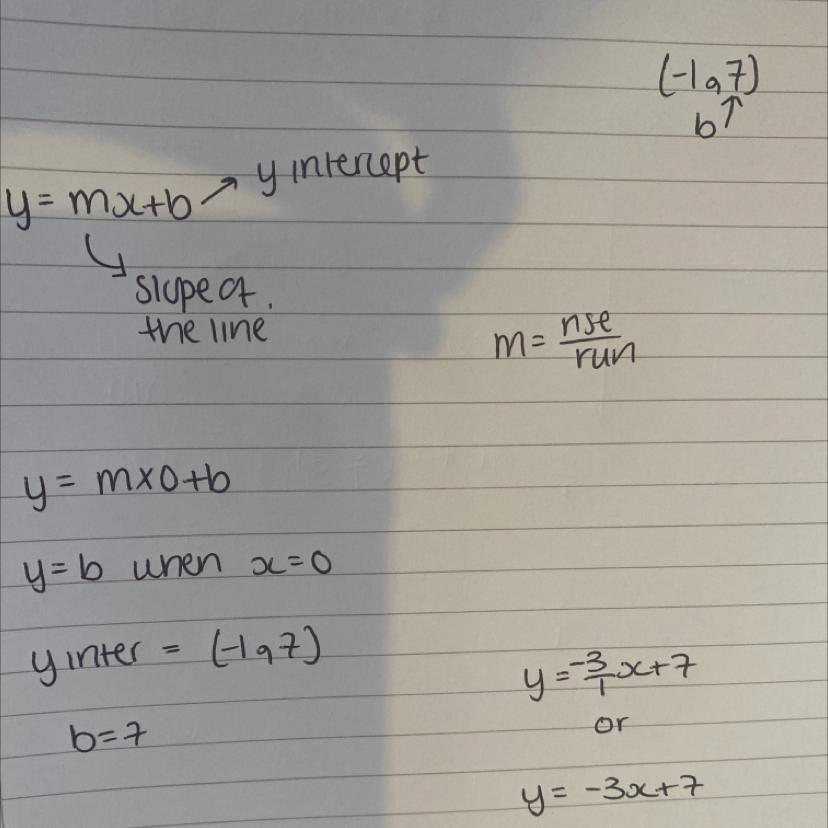 (-1,7)
b↑
y = mx+b → y intercept
slope of
the line
m = rise/run
y = m×0+b
y=b when x=0
y inter = (-1,7)
b=7
y = -3/1 x+7
or
y = -3x+7